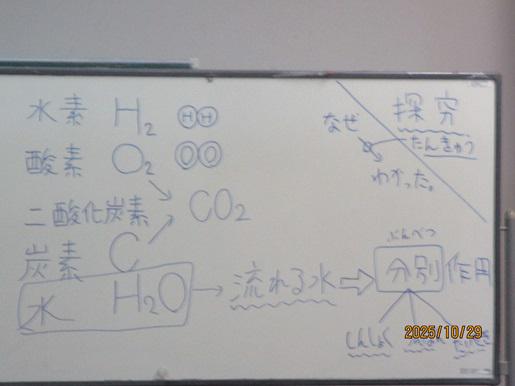 水素 H2 HH
酸素 O2 OO
二酸化炭素 CO2
炭素 C
水 H2O → 流れる水 ⇒ 分別作用
ぶんべつ
しんしょく
探究
なぜ
たんきゅう
わかった。
2025/10/29